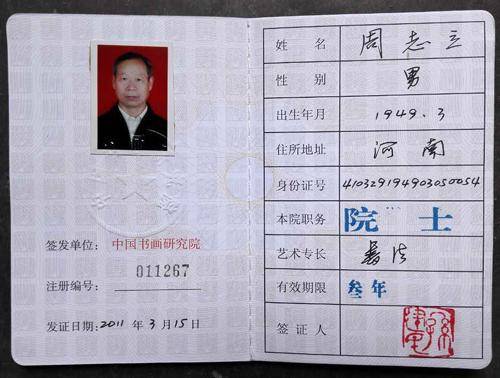 签发单位：中国书画研究院
注册编号：011267
发证日期：2011年3月15日
姓名 周志立
性别 男
出生年月 1949.3
住所地址 河南
身份证号 410329194903050054
本院职务 院士
艺术专长 书法
有效期限 叁年
签证人